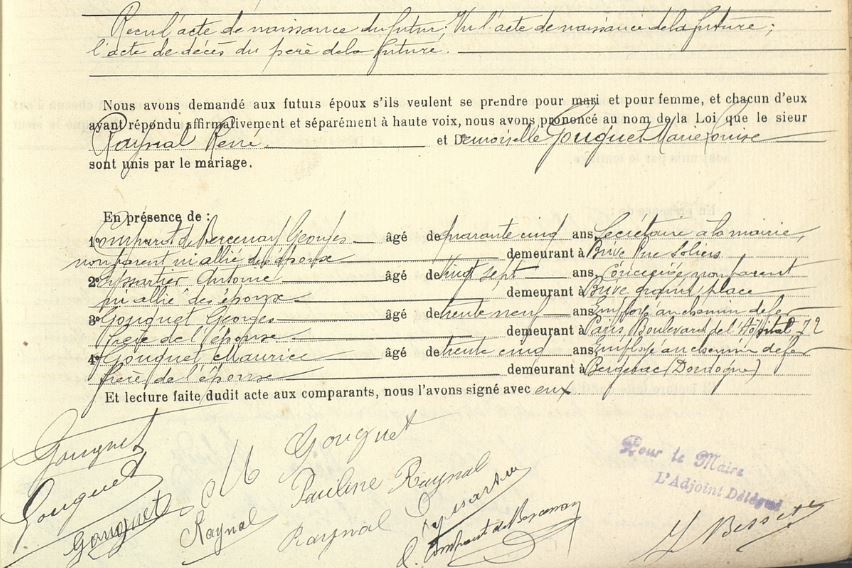 Reçu l'acte de naissance du futur. Vu l'acte de naissance de la future;
l'acte de décès du père de la future.
Nous avons demandé aux futurs époux s'ils veulent se prendre pour mari et pour femme, et chacun d'eux
ayant répondu affirmativement et séparément à haute voix, nous avons prononcé au nom de la Loi que le sieur
Raynal René et Demoiselle Gouguet Marie Louise
sont unis par le mariage.
En présence de :
1º Comparot de Bercenay Georges âgé de quarante cinq ans Secrétaire à la mairie,
non parent ni allié des époux demeurant à Brive Rue Soliers
2º Antoine âgé de vingt sept ans Concierge non parent
ni allié des époux demeurant à Brive grand place
3º Gouguet Georges âgé de trente neuf ans Employé au chemin de fer
frère de l'épouse demeurant à Paris, Boulevard de l'Hôpital 72
4º Gouguet Maurice âgé de trente cinq ans Employé au chemin de fer
frère de l'épouse demeurant à Bergerac (Dordogne)
Et lecture faite dudit acte aux comparants, nous l'avons signé avec eux
Gouguet
Gouguet
Gouguet
Gouguet
Raynal
Pauline Raynal
Raynal
Comparot de Bercenay
Pour le Maire
L'Adjoint Délégué